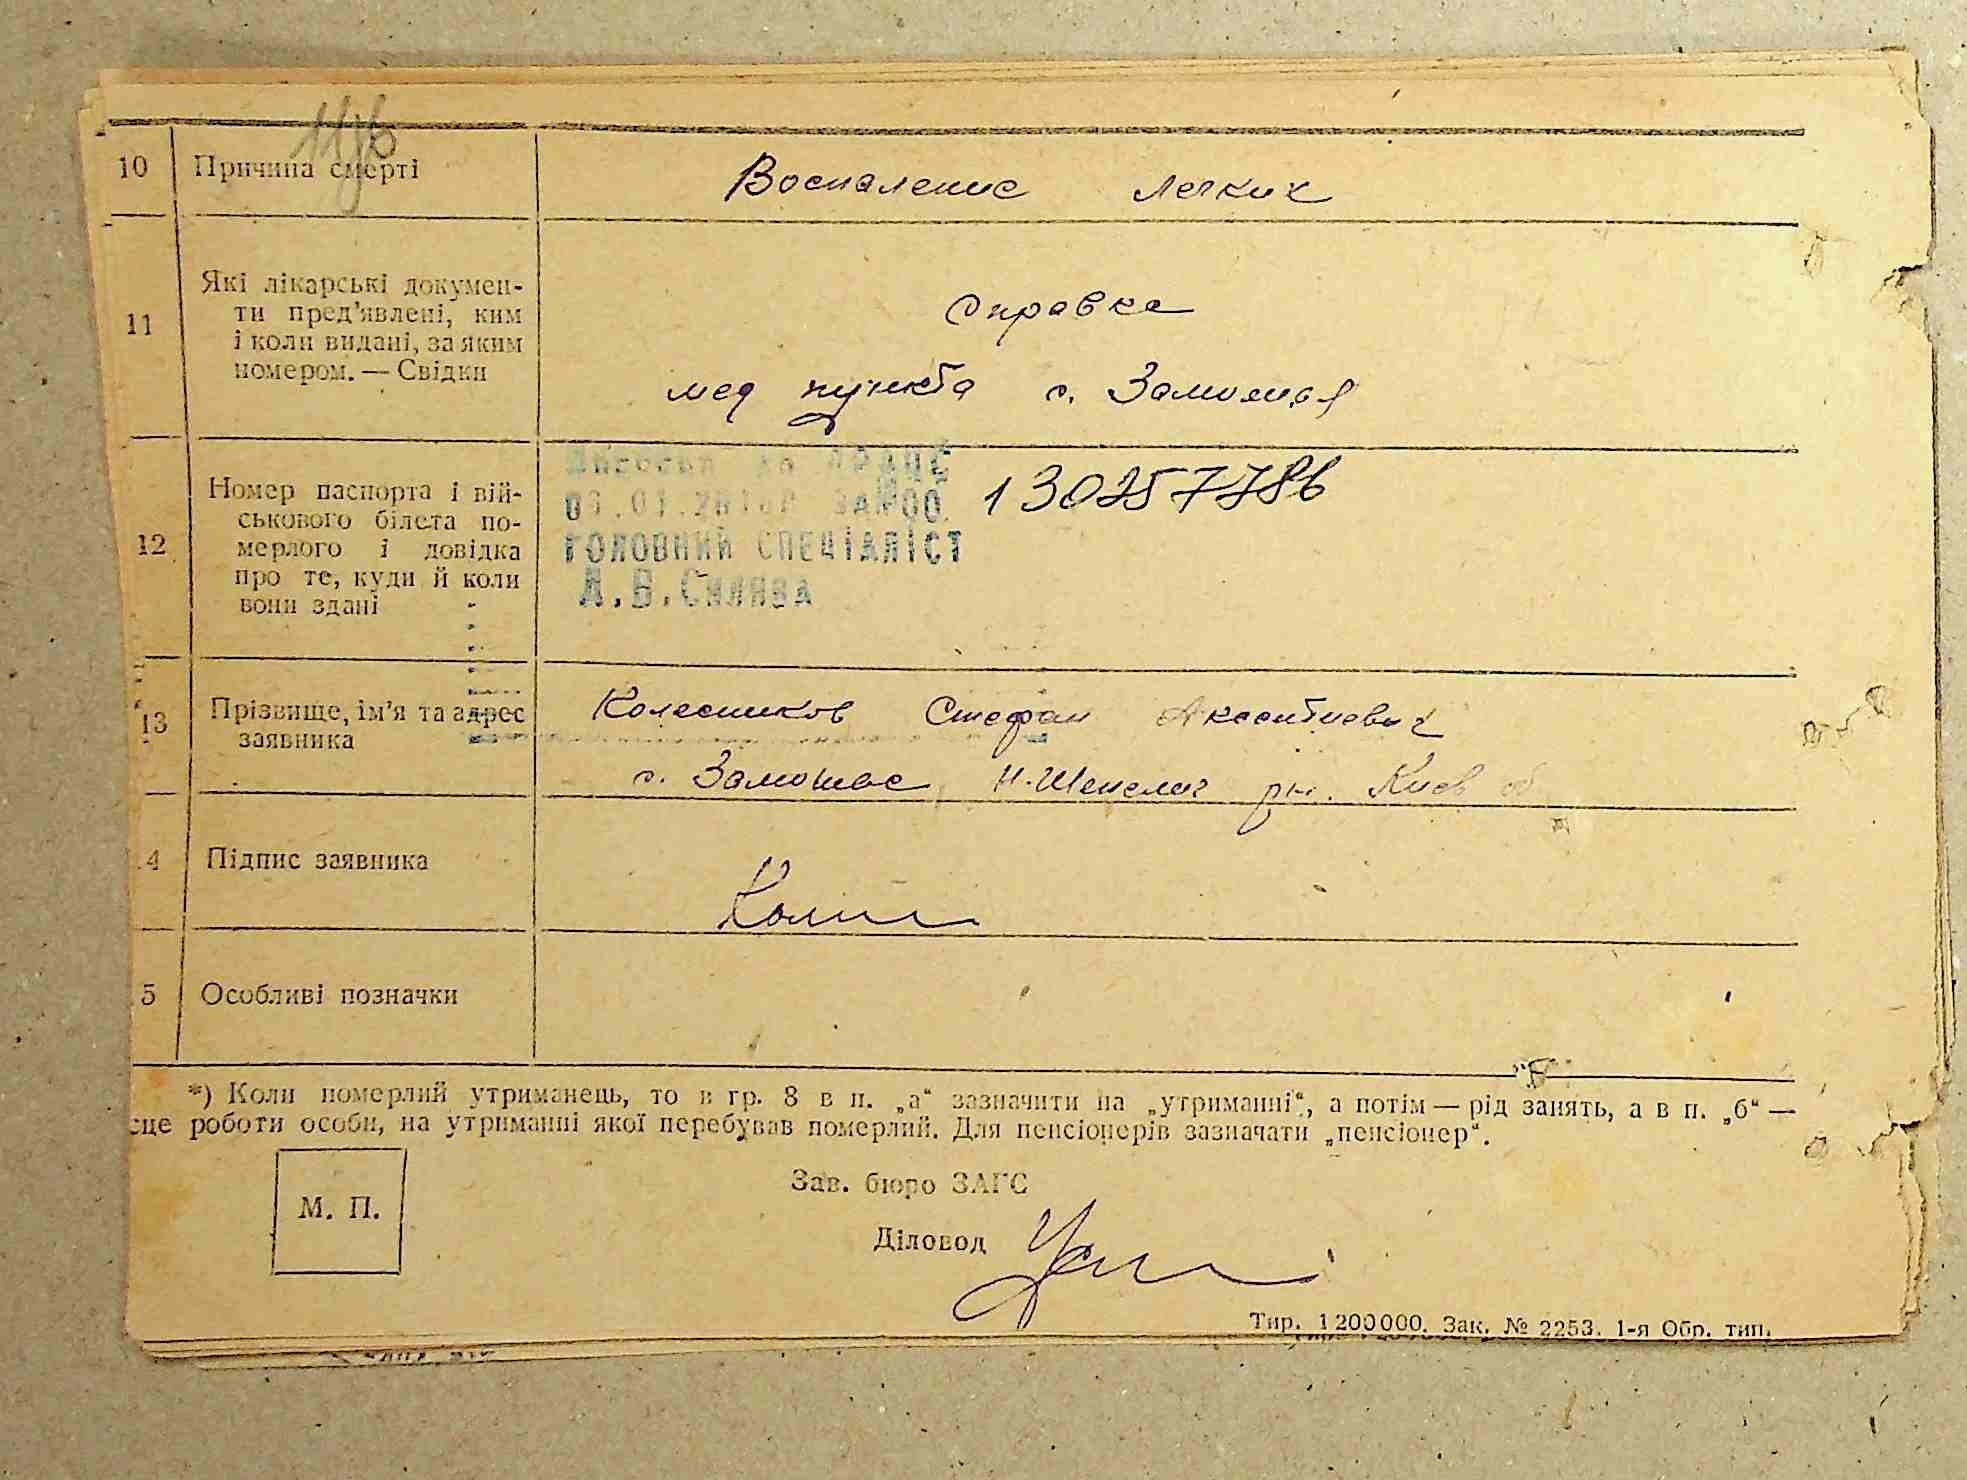 10 Причина смерті Воспаление легких
11 Які лікарські докумен-
ти пред'явлені, ким
і коли видані, за яким
номером. — Свідки
Справка
мед пункта с. Замошня
12 Номер паспорта і вій-
ськового білета по-
мерлого і довідка
про те, куди й коли
вони здані
ГОЛОВНИЙ СПЕЦІАЛІСТ
13 Прізвище, ім'я та адрес
заявника
Колесников Стефан Аксентиевич
с. Замошье Н-Шепелич рн. Киев об
4 Підпис заявника
5 Особливі позначки
*) Коли померлий утриманець, то в гр. 8 в п. „а“ зазначити на „утриманні“, а потім — рід занять, а в п. „б“ —
сце роботи особи, на утриманні якої перебував померлий. Для пенсіонерів зазначати „пенсіонер“.
М. П.
Зав. бюро ЗАГС
Діловод
Тир. 1 200 000. Зак. № 2253. 1-я Обр. тип.